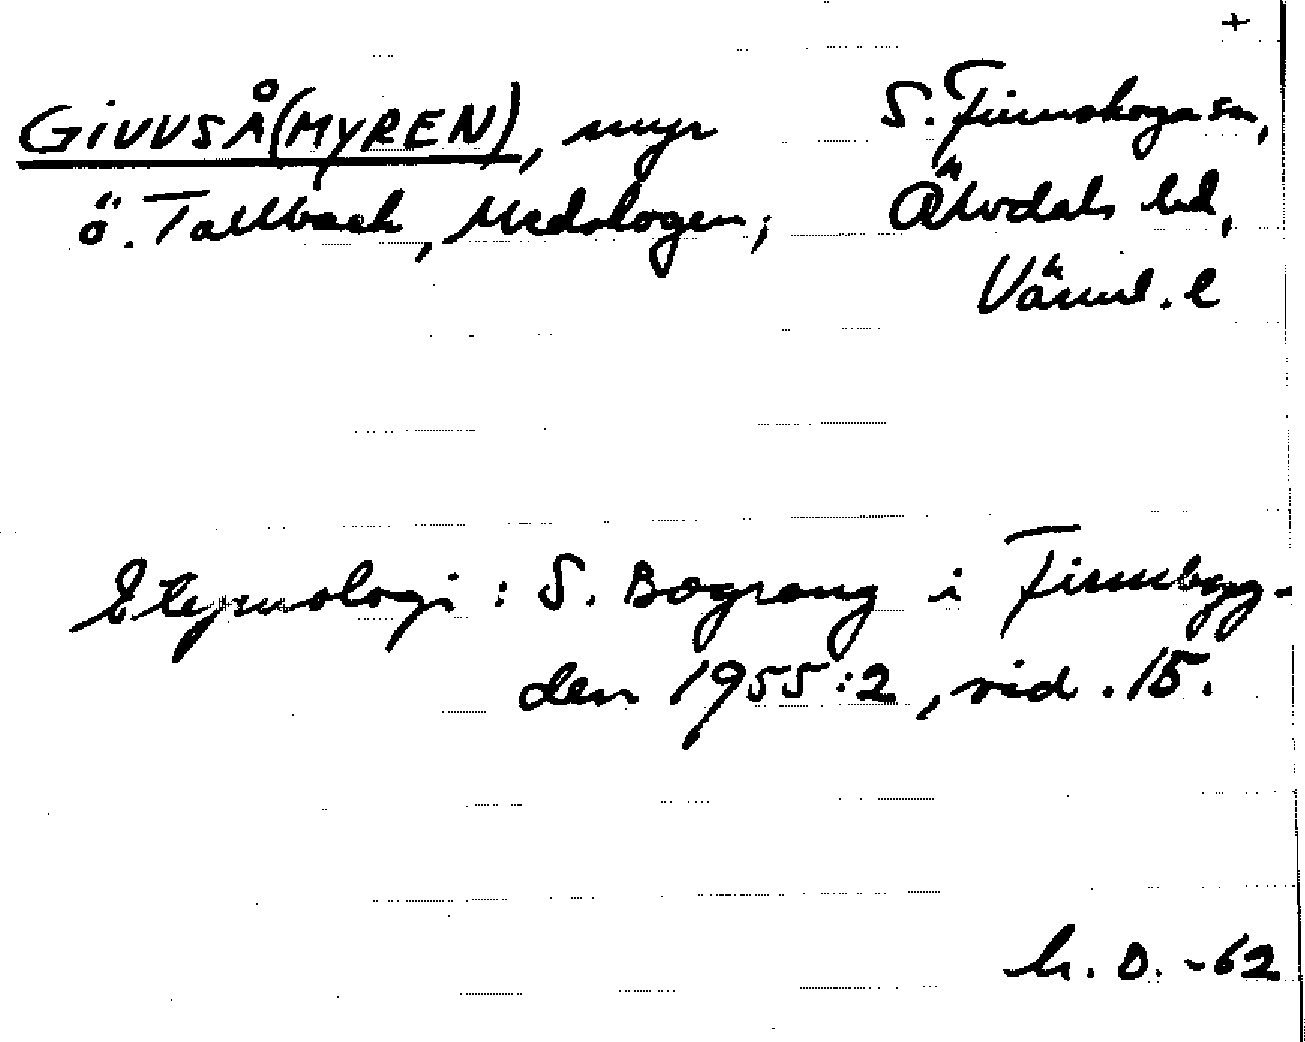 +
GIVVSÅ(MYREN), myr
ö. Tallback, Medskogen;
S. Finnskoga sn,
Älvdals hd,
Värml. l
Etymologi: S. Bograng i Finnbyg-
den 1955:2, sid. 15.
h. D. -62